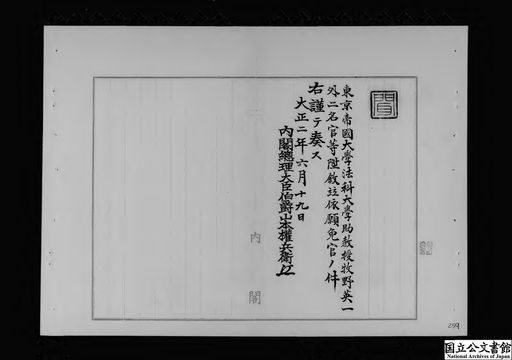 聞
東京帝國大學法科大學助教授牧野英一
外二名官等陞敍並依願免官ノ件
右謹テ奏ス
大正二年六月十九日
内閣總理大臣伯爵山本權兵衞
内閣
国立公文書館
National Archives of Japan